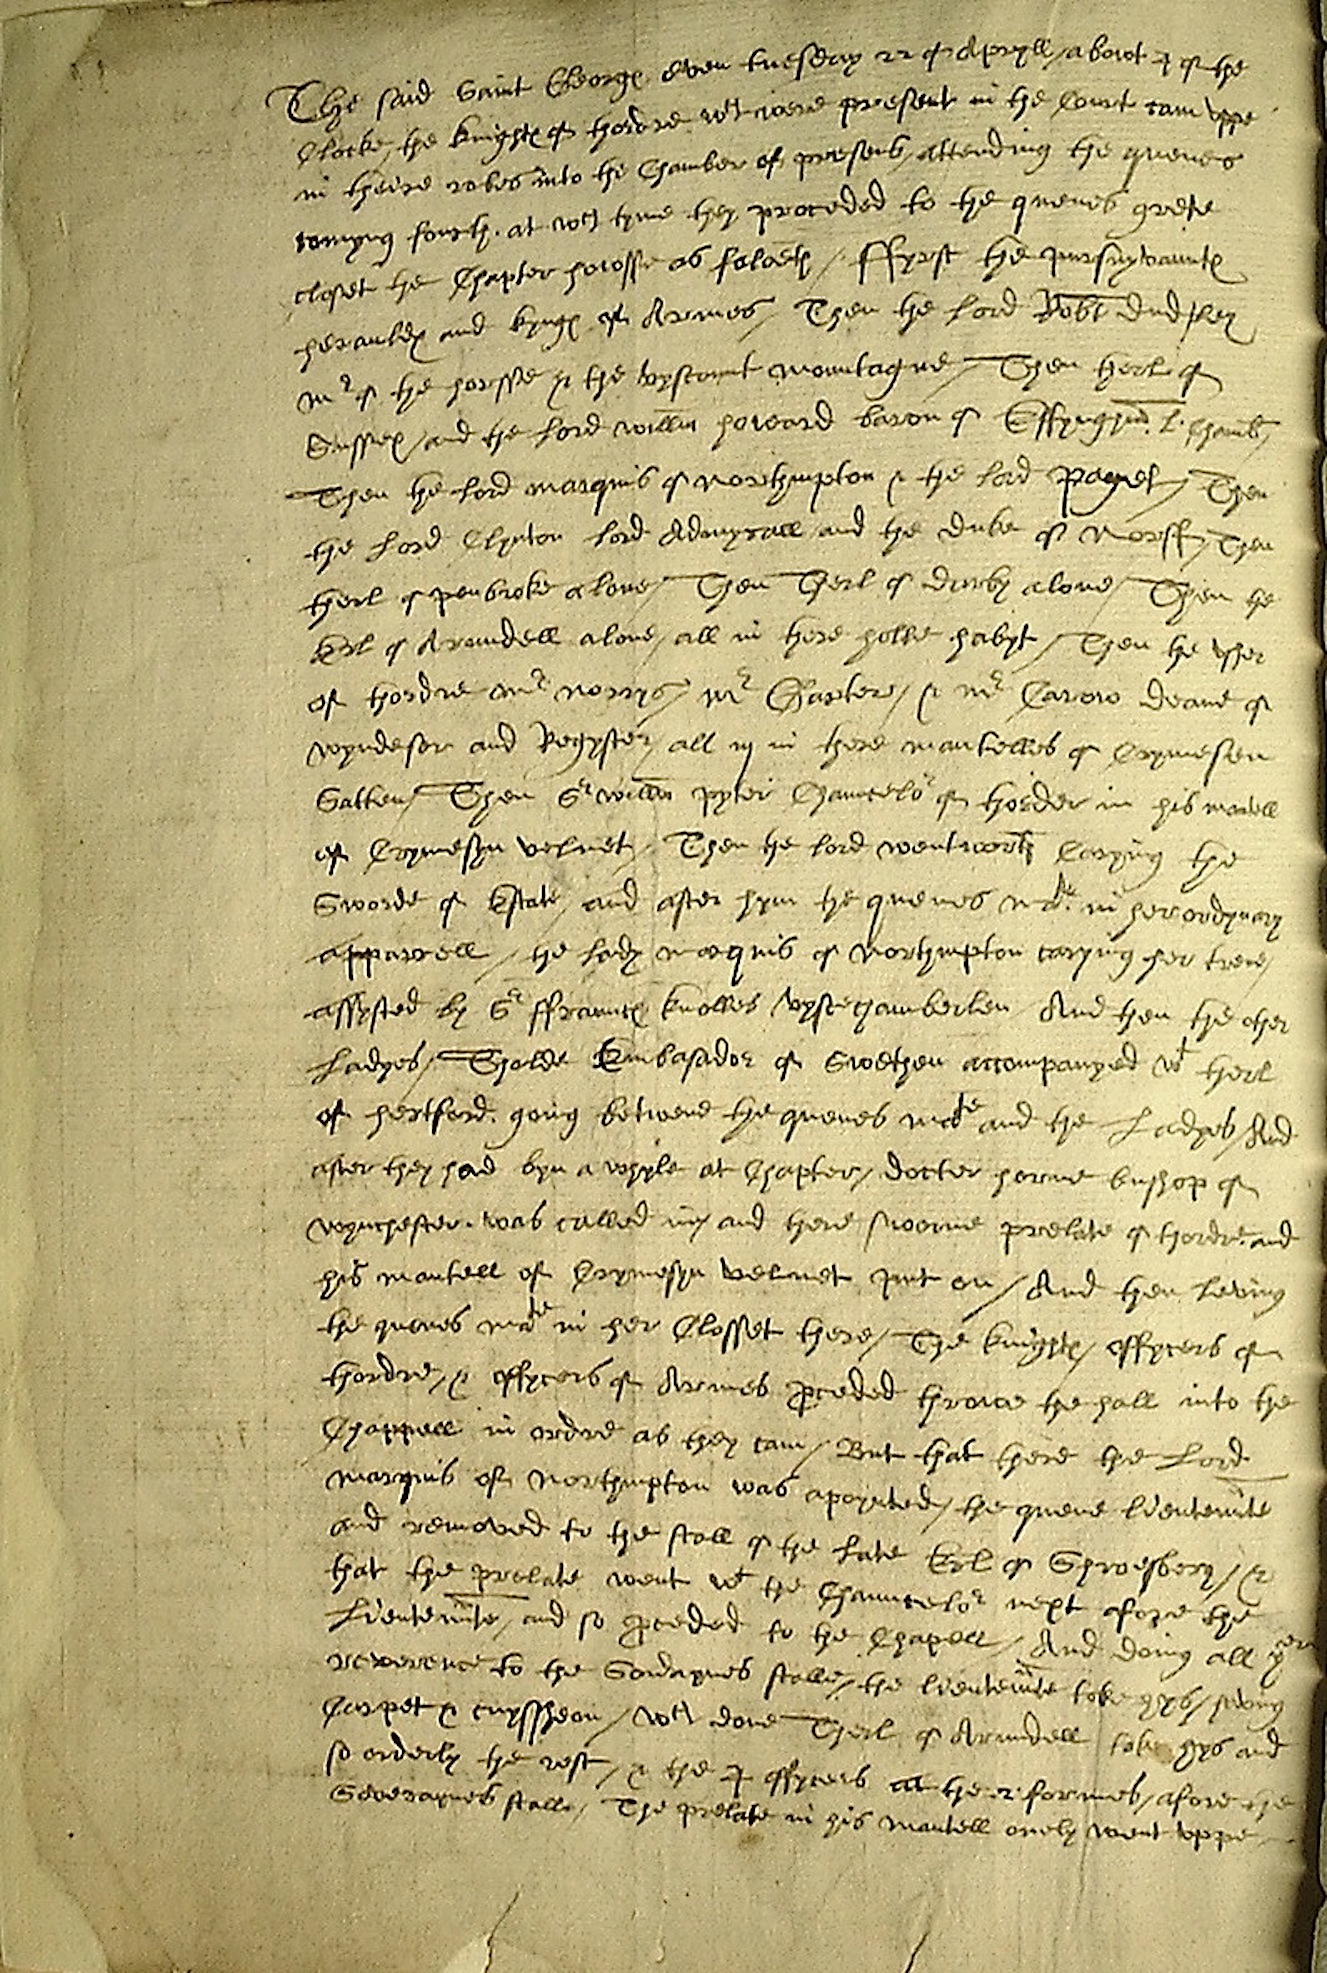 The said Saint George even tuesday 22 of Apryll / abowt 4 of the
Clocke / the knightes of thordre wch were present in the Court cam vppe
in theire robes into the Chamber of presens / attending the quenes
comyng fourth. at wch tyme they proceded to the quenes grete
closet the Chapter howsse as foloeth / ffyrst the pursuyvauntes
herauldes and kynges of Armes / Then the lord Robt dudley
mr of the horsse & the vyscount mountague / Then therl of
Sussex / and the lord willm howard baron of Effyngham l. chamb /
Then the lord marquis of northmpton & the lord Paget / Then
the lord Clynton lord Admyrall and the duke of Norff / Then
therl of penbroke alone / Then Therl of darby alone / Then the
Erl of Arundell alone / all in there holle habyt / Then the vsher
of thordre mr norrys / mr Garter / & mr Carow deane of
wyndesor and Regyster / all iij in there mantelles of Crymesen
Satten / Then Sr willm pyter Chauncelor of thorder in his mantell
of Crymesyn velvet / Then the lord wentworth Caryng the
Sworde of Estate / and after hym the quenes mate in her ordynary
apparrell / the lady marquis of Northmpton caryng her trene /
assysted by Sr ffraunces knolles vystchamberlen And then the other
Ladyes / Tholde Embasador of Swethen accompanyed wt therl
of hertford. going betwene the quenes mate and the Ladyes / And
after they had byn a whyle at Chapter / docter horne bushop of
wynchester. was called in / and there sworne prelate of thordre. and
his mantell of Crymesyn velvet put on / And then leving
the quenes mate in her Closset there / The knightes / offycers of
thordre, & offycers of Armes pceded throwe the hall into the
Chappell in ordre as they cam / But that there the Lord
marquis of Northmpton was apoynted / the quene lieutennte
and removed to the stall of the late Erl of Shrosbery / &
that the prelate went wt the Chauncelor next afore the
Lieutennte / and so pceded to the Chapell / And doing all
reverence to the Soveraynes stalle / the lieutennte toke hys / having
Carpet & cuyssheon / wch done Therl of Arundell toke hys and
so orderly the rest, & the 4 offycers att the 2 formes / afore the
Soveraynes stalle / The prelate in his mantell onely went vppe